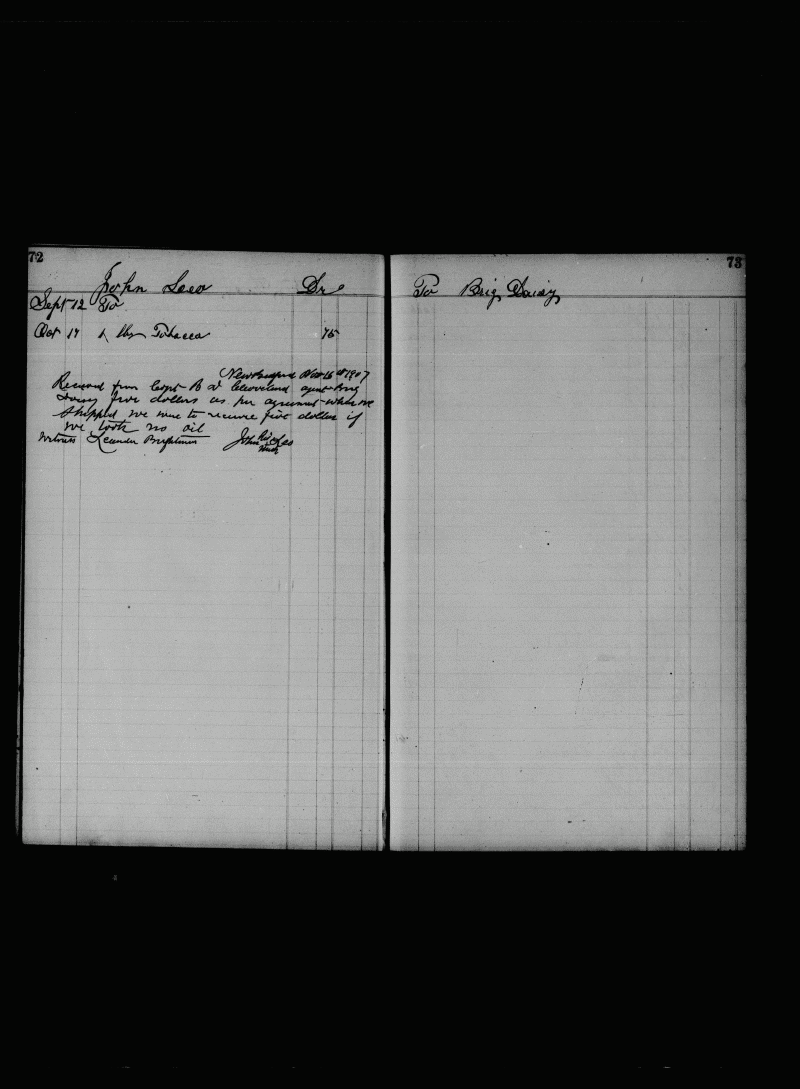 72
John Leeo Dr
Sept 12 To
Oct 17 1 lbs Tobacco 75
New Bedford Nov 16th 1907
Received from Capt B D Cleveland agent Brig
Daisy five dollars as per agreement when we
shipped we were to receive five dollars if
we took no oil
Witness Leander Brightman John his Leo
mark
73
To Brig Daisy